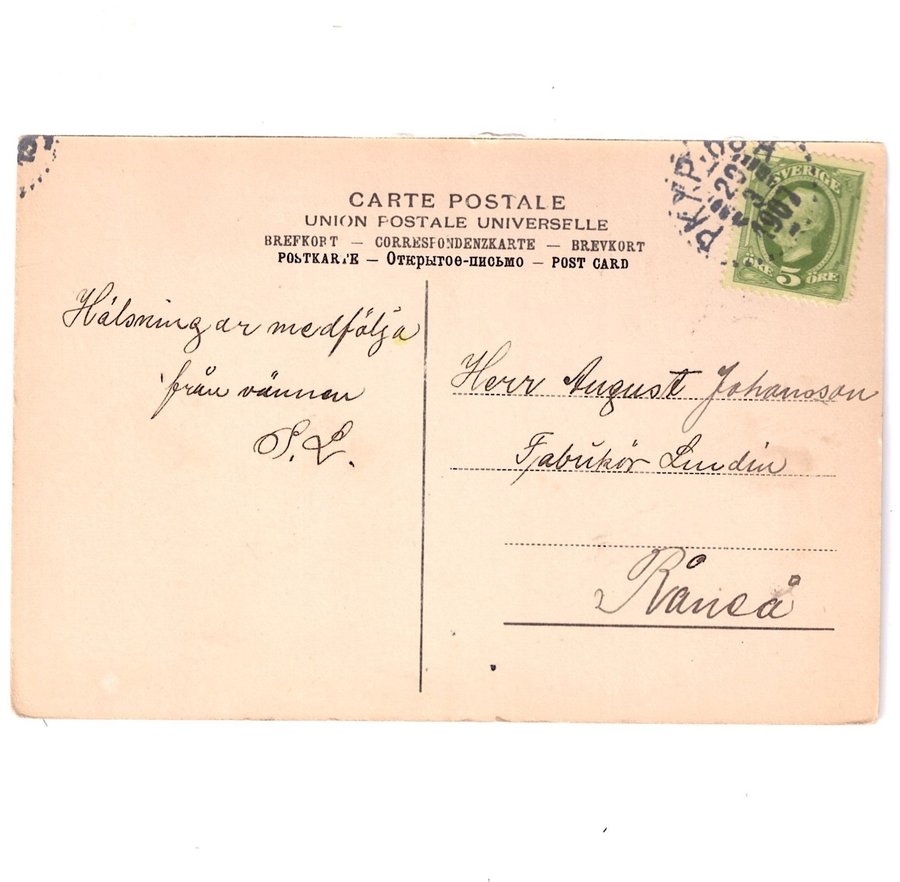 CARTE POSTALE
UNION POSTALE UNIVERSELLE
BREFKORT — CORRESPONDENZKARTE — BREVKORT
POSTKARTE — Открытое-письмо — POST CARD
SVERIGE
ÖRE 5 ÖRE
PKXP
23 3 1907
Hälsningar medfölja
från vännen
S. L.
Herr August Johansson
Fabrikör Lundin
Råneå